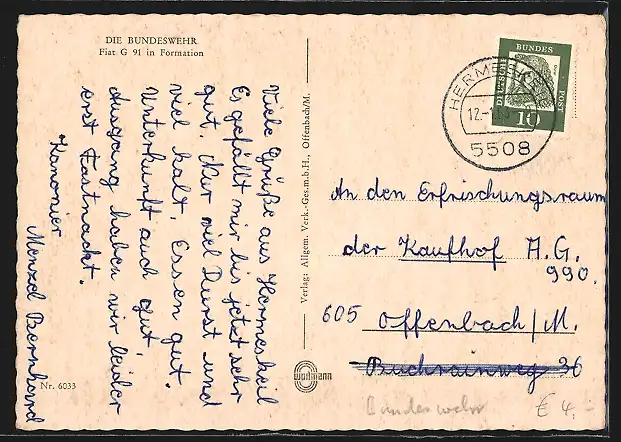 DIE BUNDESWEHR
Fiat G 91 in Formation
Viele Grüße aus Hermeskeil
Es gefällt mir bis jetzt sehr
gut. Nur viel Dienst und
viel kalt. Essen gut.
Unterkunft auch gut.
Ausgang haben wir leider
erst Fastnacht.
Kanonier
Menzel Bernhard
Nr. 6033
Verlag: Allgem. Verk.-Ges.m.b.H., Offenbach/M.
DEUTSCHE
BUNDES
POST
10
12.
5508
An den Erfrischungsraum
der Kaufhof A.G.
990.
605 Offenbach/M.
Buchrainweg 36
Bundeswehr
€ 4,-